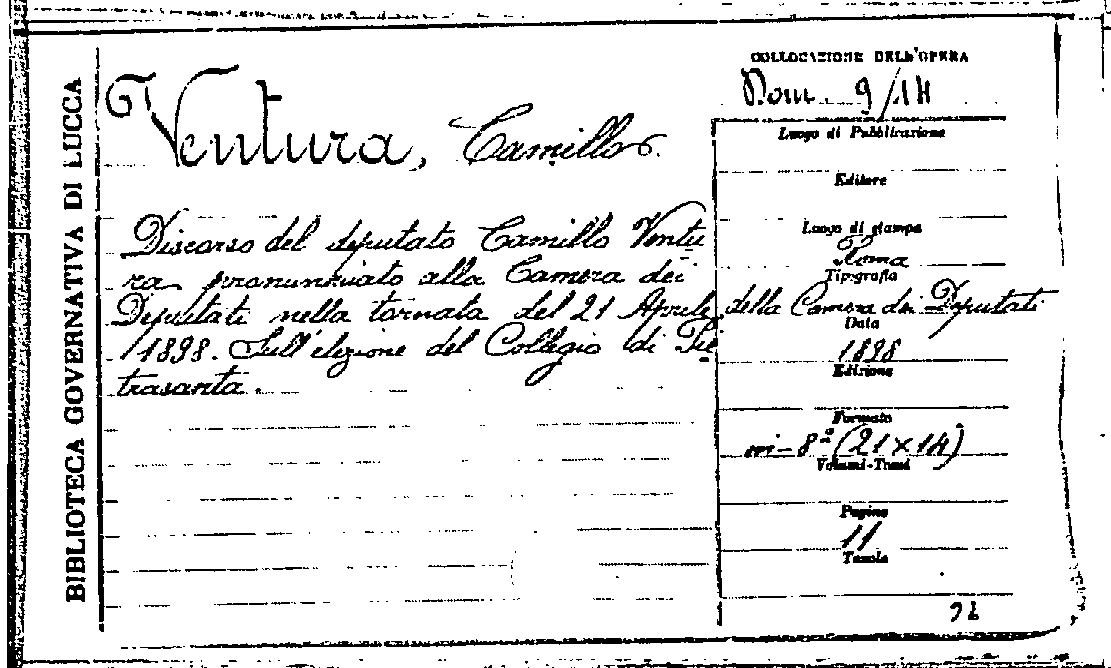 BIBLIOTECA GOVERNATIVA DI LUCCA
Ventura, Camillo.
Discorso del deputato Camillo Ventu
ra pronunziato alla Camera dei
Deputati nella tornata del 21 Aprile
1898. Sull'elezione del Collegio di Pie
trasanta.
COLLOCAZIONE DELL'OPERA
9/14
Luogo di Pubblicazione
Editore
Luogo di stampa
Roma
Tipografia
della Camera dei Deputati
Data
1898
Edizione
Formato
in-8° (21×14)
Volumi-Tomi
Pagine
11
Tavole